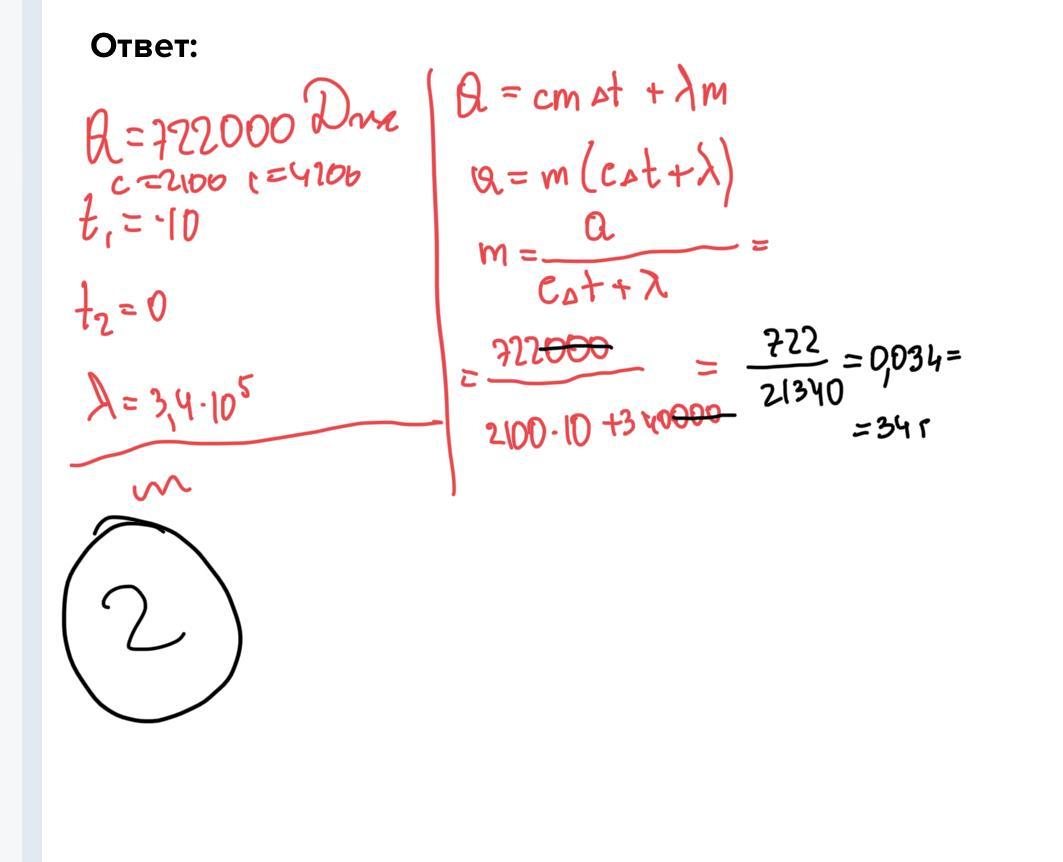 Ответ:
Q = 722000 Дж
c = 2100 c = 4200
t₁ = -10
t₂ = 0
λ = 3,4·10⁵
m
Q = cmΔt + λm
Q = m(cΔt + λ)
m = Q / (cΔt + λ) =
= 722000 / (2100·10 + 340000) = 722 / 21340 = 0,034 =
= 34 г
2